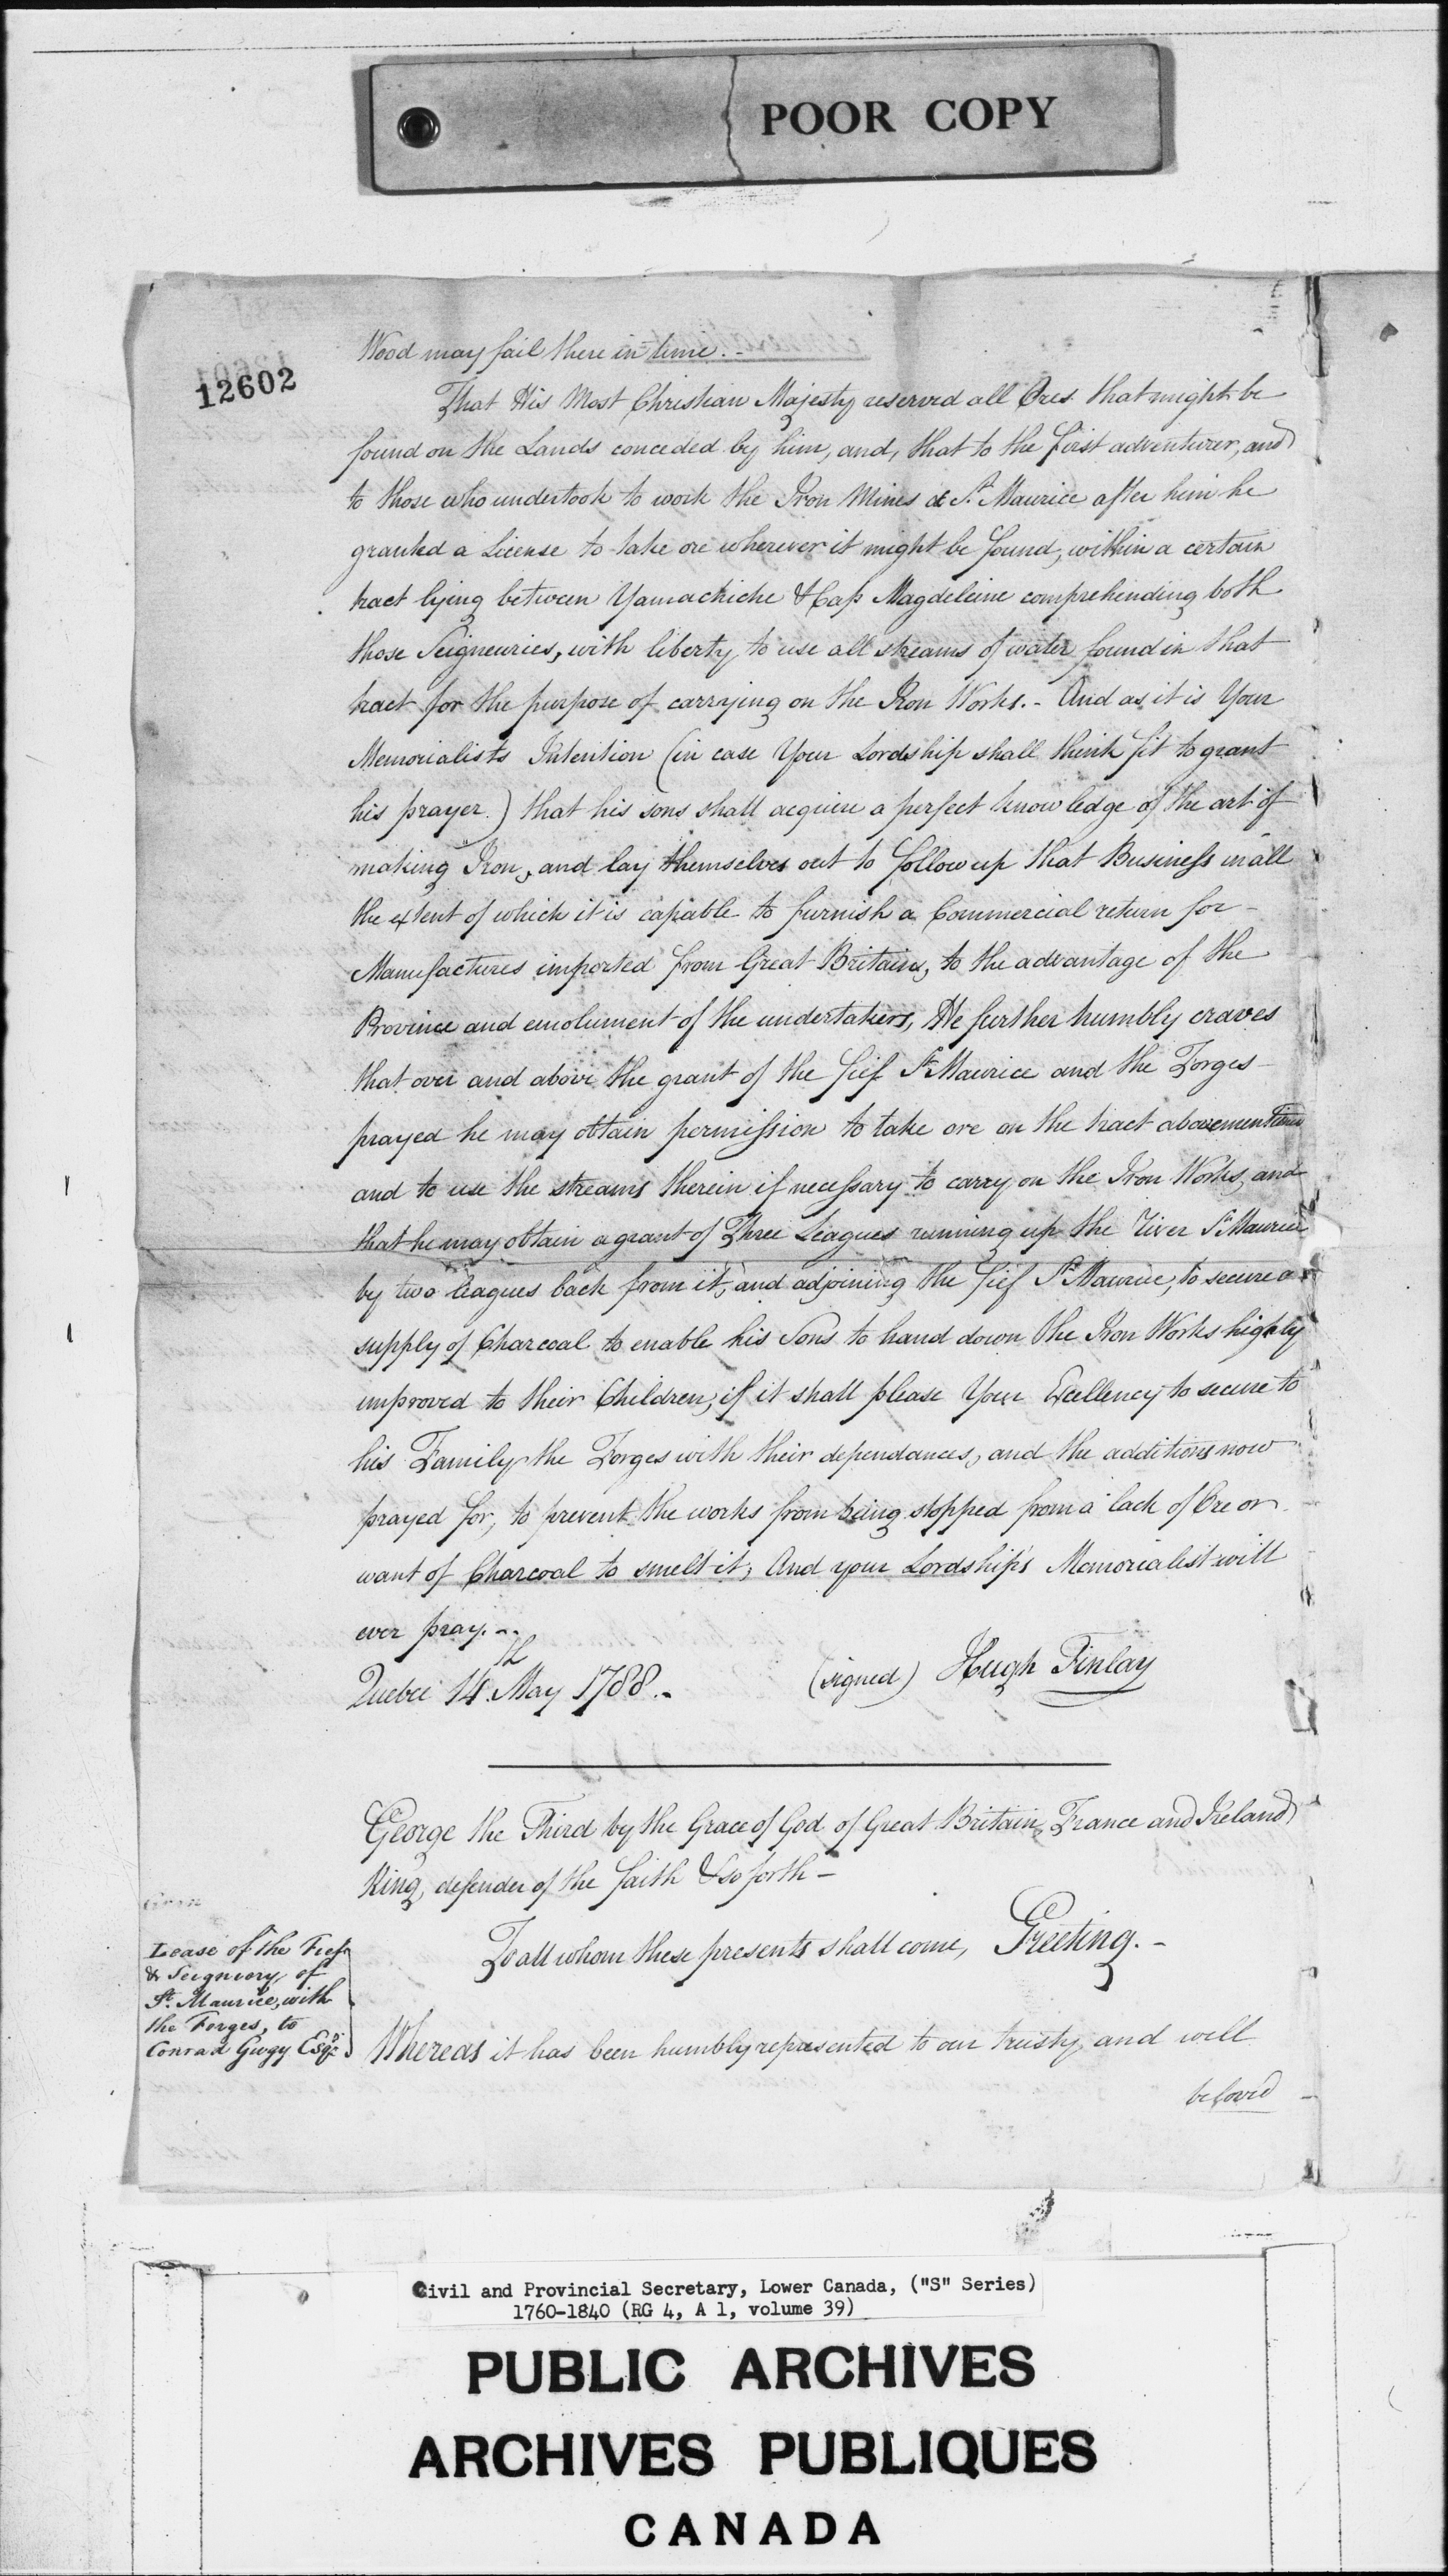 POOR COPY
12602
Wood may fail there in time.-
That His Most Christian Majesty reserved all Ores that might be
found on the Lands conceded by him, and, that to the first adventurer, and
to those who undertook to work the Iron Mines at St. Maurice after him he
granted a License to take ore wherever it might be found, within a certain
tract lying between Yamachiche & Cap Magdeleine comprehending both
those Seigneuries, with liberty to use all streams of water found in that
tract for the purpose of carrying on the Iron Works.- And as it is Your
Memorialists Intention (in case Your Lordship shall think fit to grant
his prayer.) that his sons shall acquire a perfect knowledge of the art of
making Iron, and lay themselves out to follow up that Business in all
the extent of which it is capable to furnish a Commercial return for
Manufactures imported from Great Britain, to the advantage of the
Province and emolument of the undertakers, He further humbly craves
that over and above the grant of the fief St. Maurice and the Forges
prayed he may obtain permission to take ore on the tract abovemention
and to use the streams therein if necessary to carry on the Iron Works, and
that he may obtain a grant of Three Leagues running up the River St. Maurice
by two leagues back from it, and adjoining the fief St. Maurice, to secure a
supply of Charcoal to enable his Sons to hand down the Iron Works highly
improved to their Children, if it shall please Your Excellency to secure to
his Family the Forges with their dependances, and the additions now
prayed for, to prevent the works from being stopped from a lack of Ore or
want of Charcoal to smelt it, And your Lordship's Memorialist will
ever pray.-
Quebec 14th May 1788.- (signed) Hugh Finlay
George the Third by the Grace of God of Great Britain, France and Ireland
King, defender of the faith & so forth-
To all whom these presents shall come, Greeting.-
Lease of the Fief
& Seigniory of
St. Maurice, with
the Forges, to
Conrad Gugy Esqr.
Whereas it has been humbly represented to our trusty and well
beloved
Civil and Provincial Secretary, Lower Canada, ("S" Series)
1760-1840 (RG 4, A 1, volume 39)
PUBLIC ARCHIVES
ARCHIVES PUBLIQUES
CANADA